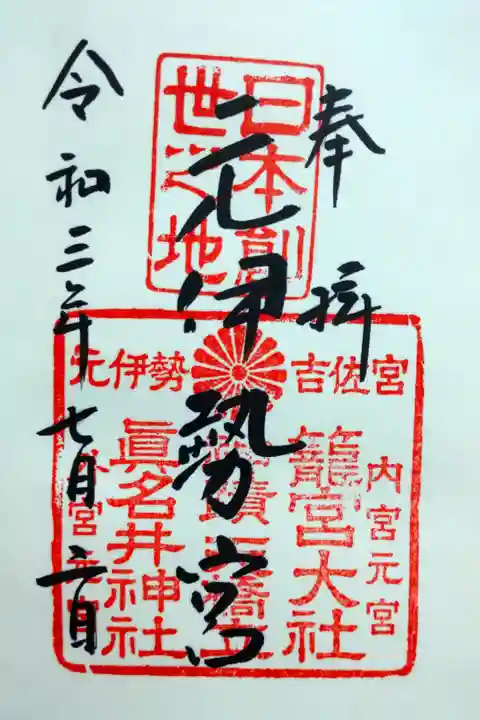 奉拝
元伊勢宮
令和三年七月六日
日本創
世之地
元伊勢 吉佐宮
内宮元宮
籠宮大社
橋立
眞名井神社
宮